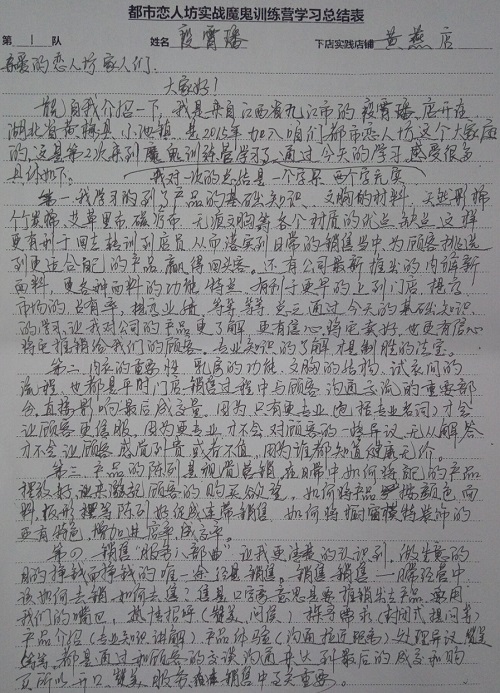 都市恋人坊实战魔鬼训练营学习总结表
第 1 队 姓名 段霄璠 下店实践店铺 黄燕店
亲爱的恋人坊家人们.
大家好!
首先自我介绍一下,我是来自江西省九江市的段霄璠.店开在
湖北省黄梅县小池镇.是2015年加入咱们都市恋人坊这个大家庭
的,这是第2次来到魔鬼训练营学习了.通过今天的学习,感受很多
具体如下。 我对一次的总结是一个字累 两个字充实
第一.我学习到了产品的基础知识. 文胸的材料. 天然彩棉
竹炭棉、艾草里布、磁疗布 无痕文胸等各个材质的优点、缺点.这样
更有利于回去培训到店员,从而落实到日常的销售当中,为顾客挑选
到更适合自己的产品,赢得回头客。还有公司最新推出的内裤新
面料,更各种面料的功能特点,有利于更早的上到门店,提高
市场的占有率,提高业绩,等等等等 总之通过今天的基础知识
的学习,让我对公司的产品更了解 更有信心将它卖好,也更有信心
将它推销给我们的顾客。专业知识的了解才是制胜的法宝。
第二.内衣的重要性,乳房的功能,文胸的结构、试衣间的
流程,也都是平时门店销售过程中与顾客沟通交流的重要部
分.直接影响最后成交量,因为只有更专业(包括专业名词)才会
让顾客更信服,因为更专业才不会对顾客的一些异议.无从解答
才不会让顾客感觉到贵或者不值,因为谁都知道健康无价。
第三.产品的陈列是视觉营销,在日常中如何将配的产品
摆放好,进来激起顾客的购买欲望. 如何将产品按颜色,面
料,板形摆等陈列好促成连带销售. 如何将橱窗模特装饰的
更有特色,增加进店率,成交率。
第四.销售“服务八部曲” 让我更清楚的认识到,做生意的
目的挣钱而挣钱的唯一途径是销售。销售销售——日常经营中
该如何去销 如何去售? 这是口字意思是要推销出产品 要用
我们的嘴巴, 热情招呼(赞美、问侯) 探寻需求(封闭式提问等)
产品介绍(专业知识讲解)产品体验(沟通 拉近距离)处理异议 赞美
等等,都是通过和顾客的交谈沟通来达到最后的成交和购
买.所以开口、赞美、服务、在销售中至关重要。